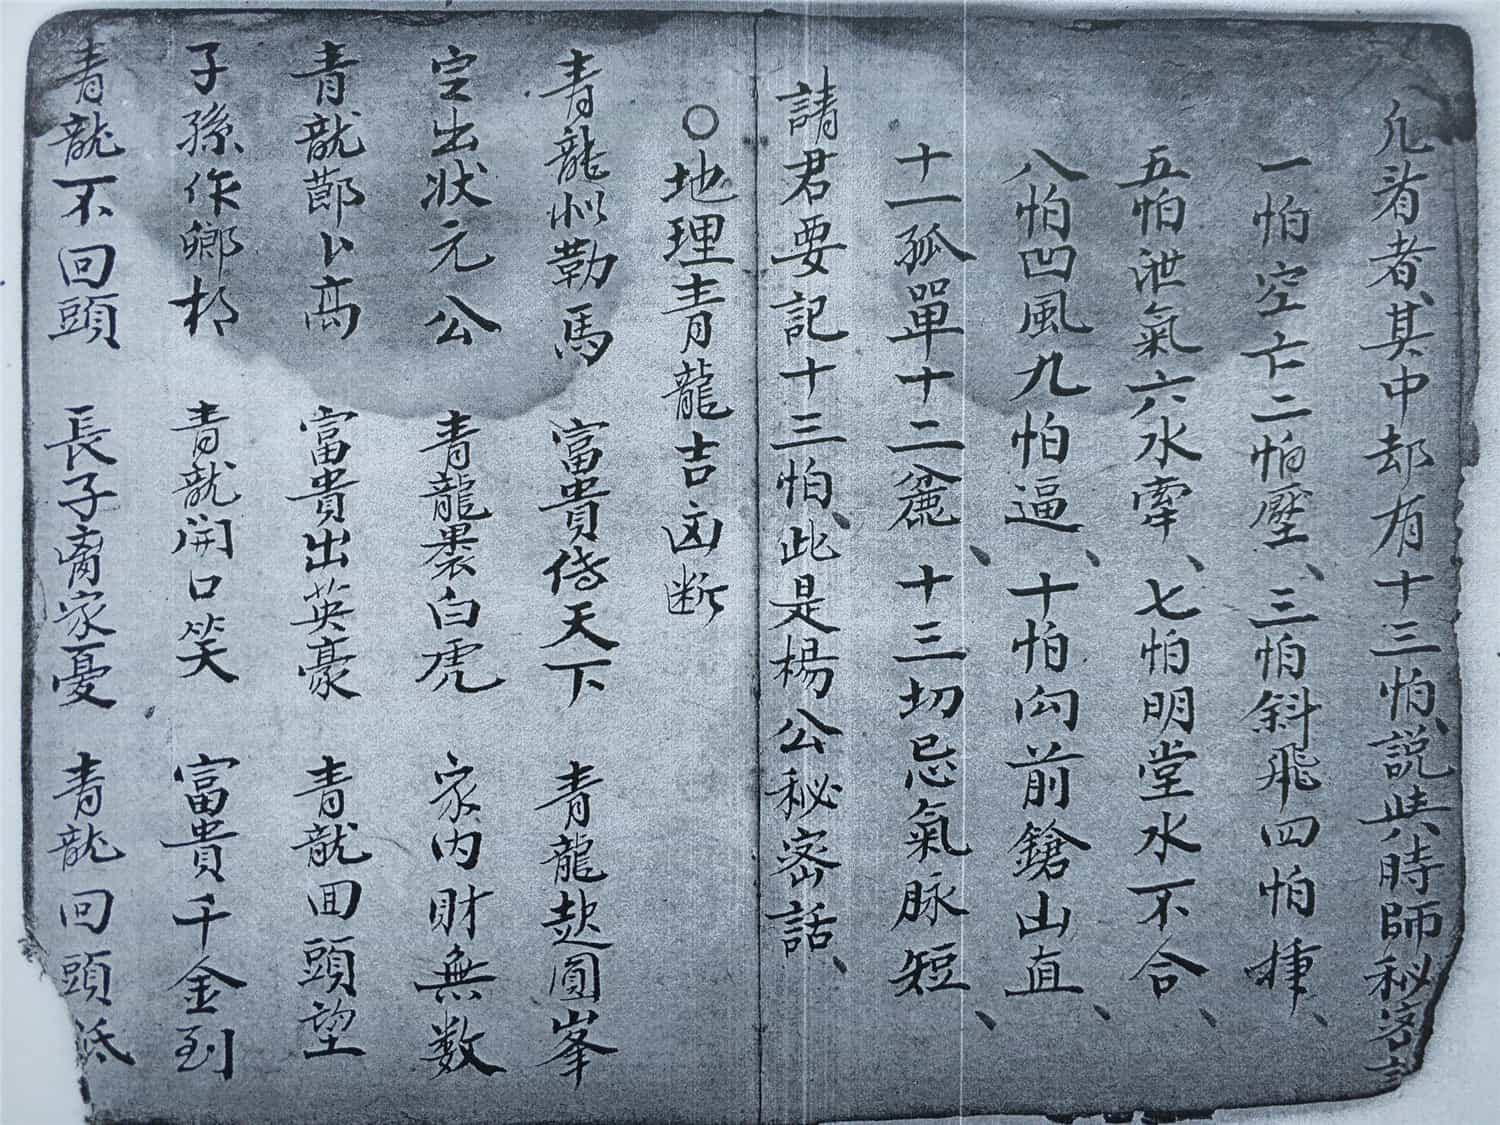 凢着者其中却有十三怕、說與時師秘密
一怕空亡二怕壓、三怕斜飛四怕
五怕泄氣六水牽、七怕明堂水不合、
八怕凹風九怕逼、十怕向前鎗山直、
十一孤單十二麄、十三切忌氣脉短、
請君要記十三怕、此是楊公秘密話、
○地理青龍吉凶断
青龍似勒馬 富貴傳天下 青龍起圓峯
定出状元公 青龍裹白虎 家内財無数
青龍節卜高 富貴出英豪 青龍囬頭望
子孫作鄉村 青龍開口笑 富貴千金到
青龍不回頭 長子离家憂 青龍回頭低